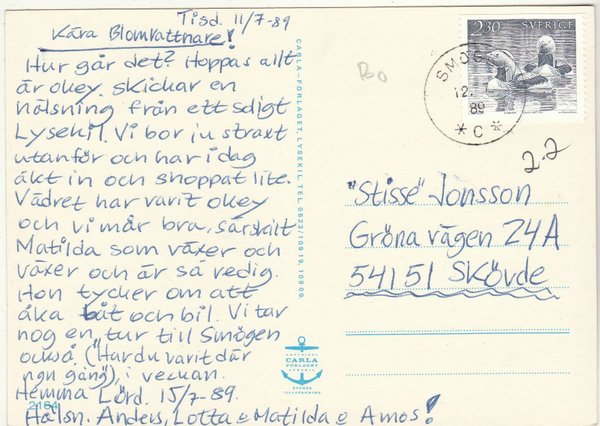 Tisd. 11/7-89
Kära Blomvattnare!
Hur går det? Hoppas allt
är okey. skickar en
hälsning från ett soligt
Lysekil. Vi bor ju straxt
utanför och har idag
åkt in och shoppat lite.
Vädret har varit okey
och vi mår bra, särskilt
Matilda som växer och
växer och är så redig.
Hon tycker om att
åka båt och bil. Vi tar
nog en tur till Smögen
också ("Har du varit där
ngn gång"), i veckan.
Hemma Lörd. 15/7-89.
2164
Hälsn. Anders, Lotta o Matilda o Amos!
CARLA-FÖRLAGET, LYSEKIL. TEL. 0523/109 19, 109 09.
COPYRIGHT
CARLA
FÖRLAGET
LYSEKIL
SVENSK
TILLVERKNING
Bo
230 SVERIGE
12.
89
* C *
2-2
"Stisse" Jonsson
Gröna vägen 24A
541 51 SKövde